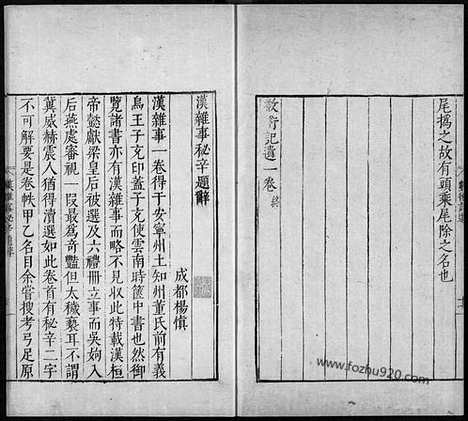 尾撝之故有頭乘尾除之名也
數術記遺一卷 終
漢雜事秘辛題辭
成都楊慎
漢雜事一卷得于安寧州土知州董氏前有義
烏王子充印蓋子充使雲南時篋中書也然御
覽諸書亦有漢雜事而略不見收此特載漢桓
帝懿獻梁皇后被選及六禮冊立事而吳姁入
后燕處審視一叚最爲奇豔但太穢褻耳不謂
冀威赫震人猶得瀆選如此卷首有秘辛二字
不可解要是卷帙甲乙名目余嘗搜考弓足原
www.fozhu920.com